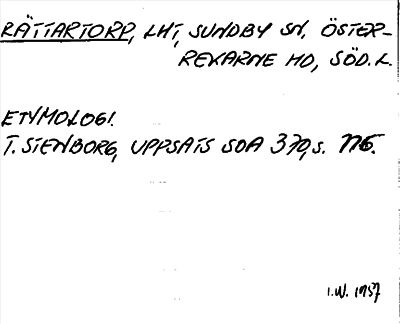 RÄTTARTORP, LHT, SUNDBY SN, ÖSTER-
REKARNE HD, SÖD. L.
ETYMOLOGI.
T. STENBORG, UPPSATS SOA 370, S. 116.
I.W. 1957